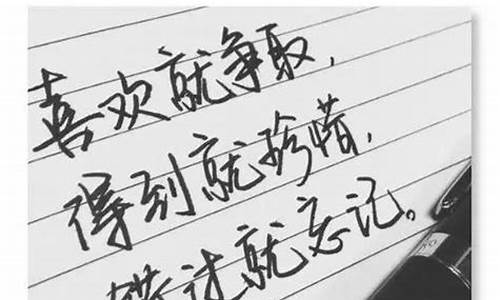 喜欢就争取，
得到就珍惜，
错过就忘记。